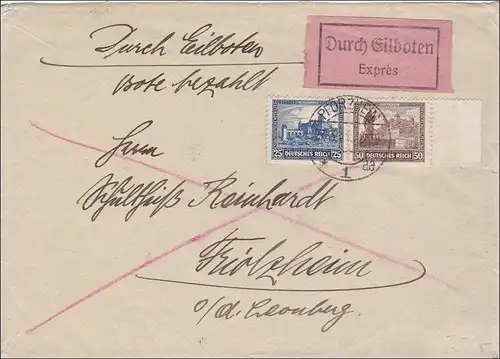 Durch Eilboten
bote bezahlt
Durch Eilboten
Exprès
PFORZHEIM
1
25 25
DEUTSCHES REICH
50 50
DEUTSCHES REICH
Herrn
Schultheiß Reinhardt
Friolzheim
o/a. Leonberg.